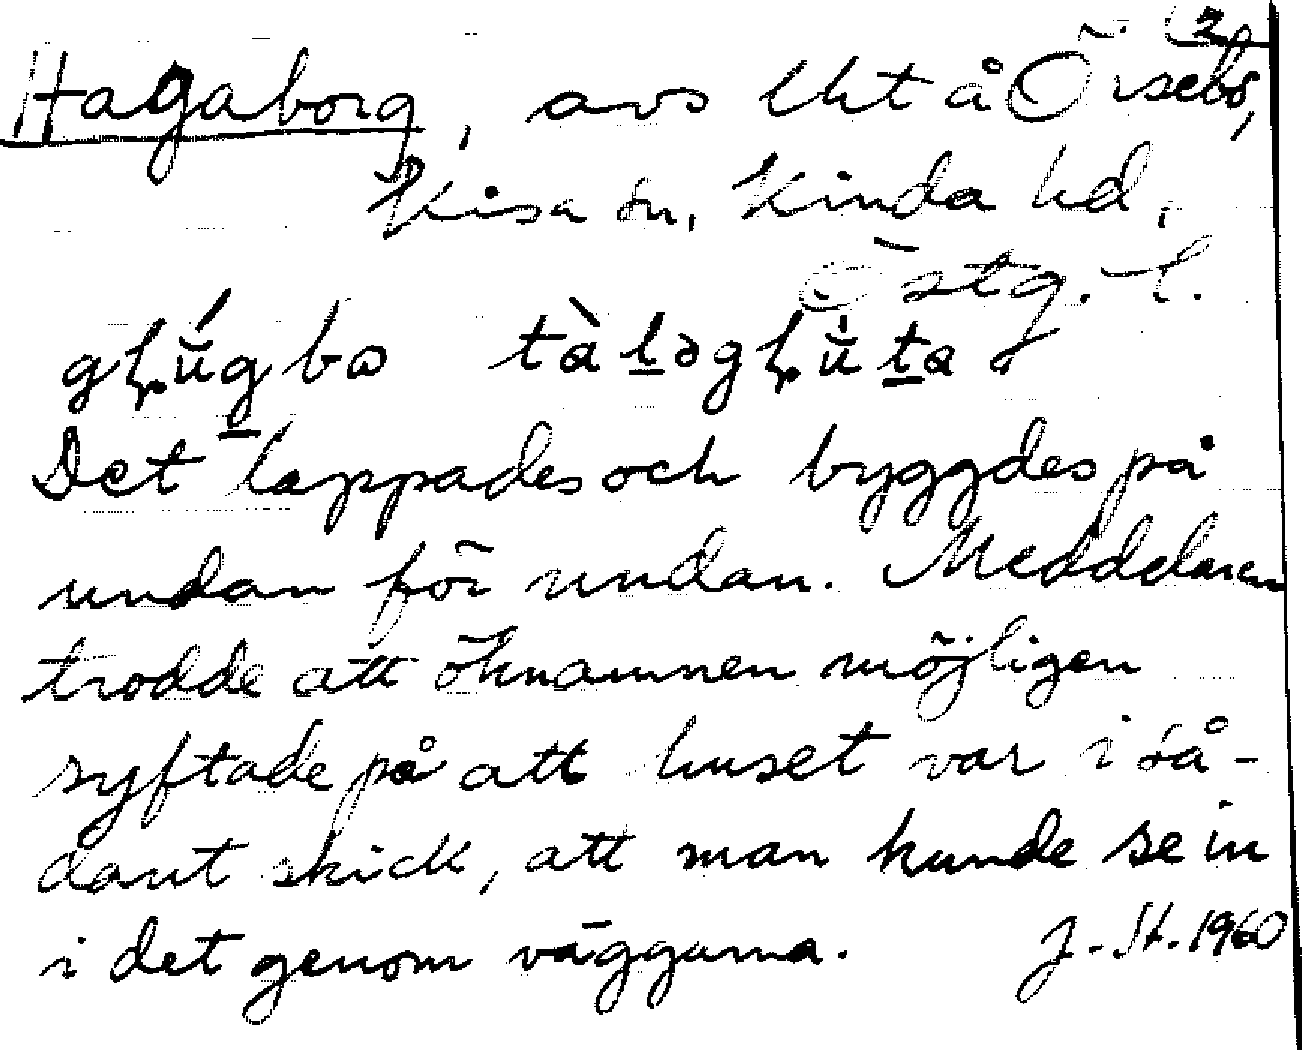 2
Hagaborg, avs lht å Örsebo,
Kisa sn, Kinda hd,
Östg. l.
Det lappades och byggdes på
undan för undan. Meddelaren
trodde att öknamnen möjligen
syftade på att huset var i så-
dant skick, att man kunde se in
i det genom väggarna. J. St. 1960